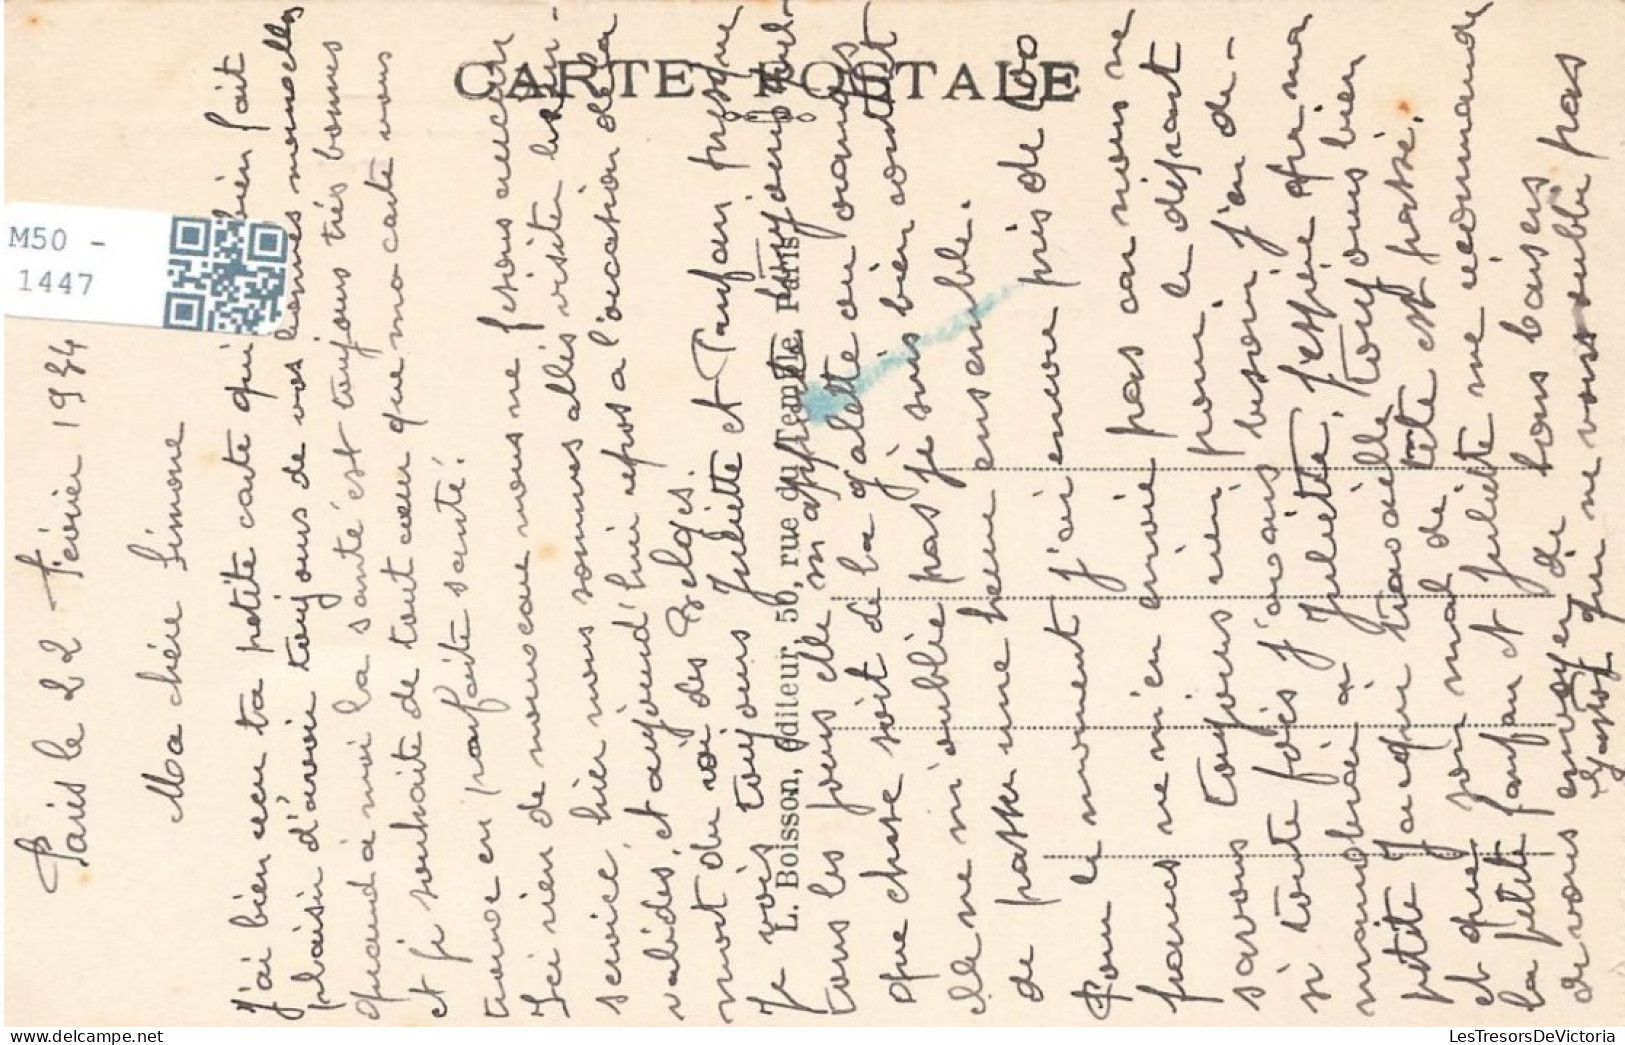 CARTE POSTALE
L. Boisson, éditeur, 50, rue du Temple, Paris
M50 -
1447
Paris le 22 Février 1934
Ma chère Simone
J'ai bien eu ta petite carte qui bien fait
plaisir d'avoir toujours de vos bonnes nouvelles
quand à moi la santé est toujours très bonnes
et je souhaite de tout cœur que ma carte vous
trouve en parfaite santé.
Ici rien de nouveau nous ne fesons aucun
service, hier nous sommes allés visiter les in-
valides, et aujourd'hui repos a l'occasion de la
mort du roi des Belges.
Je vois toujours Juliette et Fanfan presque
tous les jours elle m'apporte toujours quel-
que chose soit de la galette ou oranges
elle ne m'oublie pas je suis bien content
de passer une heure ensemble.
Pour le moment j'ai encore près de 100
francs ne m'en envoie pas car nous ne
savons toujours rien pour le départ
si toute fois j'avais besoin j'en de-
manderai à Juliette. J'espère que ma
petite Jacqui travaille toujours bien
et que son mal de tête est passé.
la petite fanfan et Juliette me recommande
de vous envoyer de bons baisers
qui ne vous oublie pas
LesTresorsDeVictoria.com